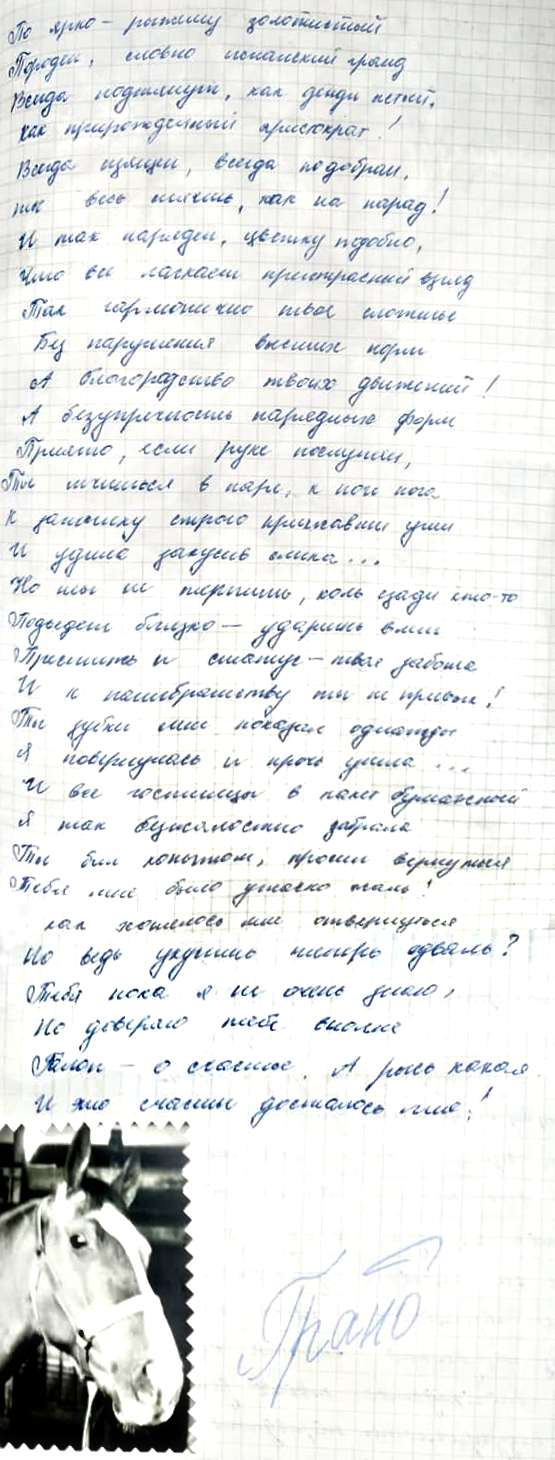 По ярко - рыжему золотистый
Породен, словно испанский гранд
Всегда подтянут, как денди
как прирождённый аристократ!
Всегда изящен, всегда подобран,
ты весь как на парад!
И так наряден, цветку подобно,
Что все ласкает пристрастный взгляд
Так гармонично твоё сложенье
Без нарушения высших норм
А благородство твоих движений!
А безупречность нарядных форм
Приятно, если руке послушен,
Ты мчишься в паре, к ноге нога
К затылку строго прижавши уши
И удила закусив слегка...
Но ты не терпишь, коль сзади кто-то
Подъедет близко — ударишь вмиг
Престиж и статус - твоя забота
И к панибратству ты не привык!
Ты зубки мне показал однажды
Я повернулась и прочь ушла...
И все гостинцы в пакет бумажный
Я так безжалостно забрала
Ты бил копытом, просил вернуться
Тебя мне было ужасно жаль!
как хотелось мне отвернуться
Но ведь укусишь теперь едва ль?
Тебя пока я не очень знаю,
Но доверяю тебе вполне
Галоп - о счастье. А рысь какая
И это счастье досталось мне!